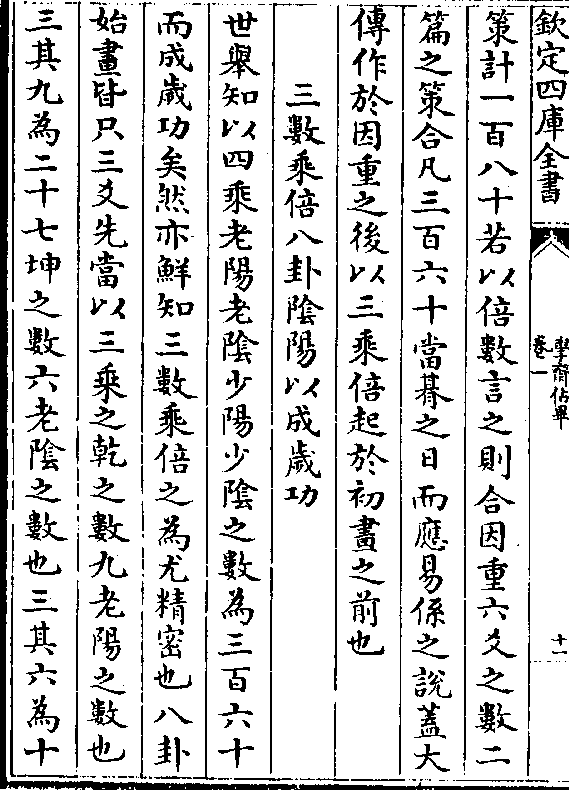 欽定四庫全書
學齋佔畢
卷一
十一
策計一百八十若以倍數言之則合因重六爻之數二
篇之策合凡三百六十當朞之日而應易係之說蓋大
傳作於因重之後以三乘倍起於初畫之前也
三數乘倍八卦陰陽以成歲功
世舉知以四乘老陽老陰少陽少陰之數為三百六十
而成歲功矣然亦鮮知三數乘倍之為尤精密也八卦
始畫皆只三爻先當以三乘之乾之數九老陽之數也
三其九為二十七坤之數六老陰之數也三其六為十